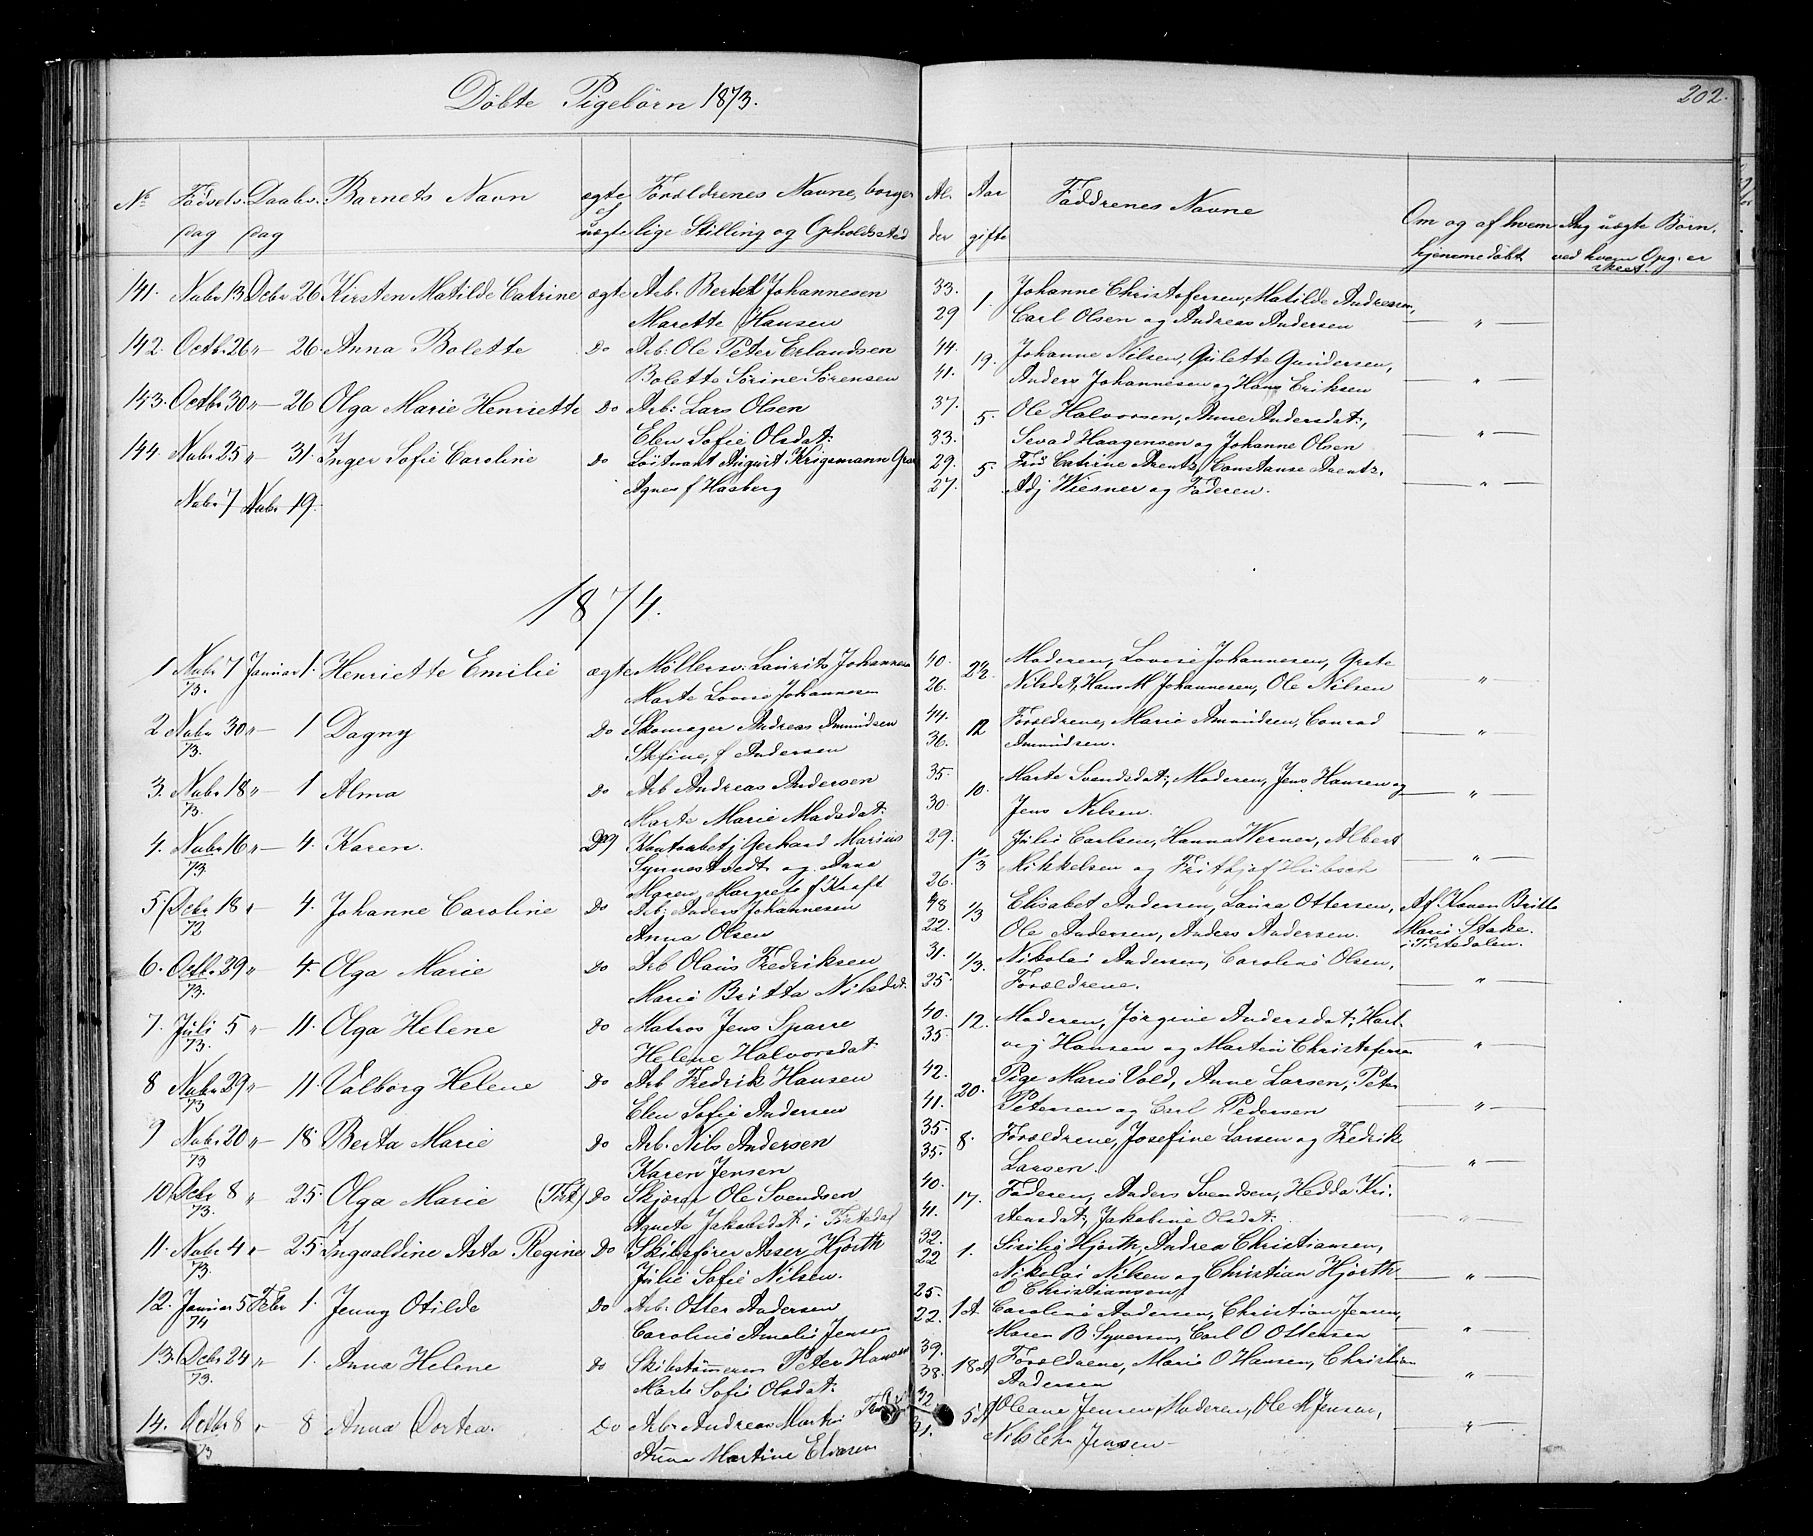 Döbte Pigebörn 1873.
202.
No Födsels Dag Daabs Dag Barnets Navn ægte el uægte Forældrenes Navne, borgerlige Stilling og Opholdssted Alder Aar gifte Faddrenes Navne Om og af hvem hjemmedöbt Ang uægte Börn, ved hvem Opg: er skeet
141. Nvbr 13 Dcbr 26 Kirsten Matilde Catrine ægte Arb. Bertel Johannesen 33. 1. Johanne Christofersen, Matilde Andresen,
Marette Hansen 29 Carl Olsen og Andreas Andersen — " —
142. Octb. 26 " — 26. Anna Bolette Do Arb: Ole Peter Erlandsen 44. 19. Johanne Nilsen, Gulette Gundersen,
Bolette Sörine Sörensen 41. Anders Johannesen og Hans Eriksen — " —
143. Octbr 30 " — 26 Olga Marie Henriette Do Arb: Lars Olsen 37. 5. Ole Halvorsen, Anne Andersdat:,
Elen Sofie Olsdat: 33. Sevad Haagensen og Johanne Olsen — " —
144. Nvbr 25 " — 31. Inger Sofie Caroline Do Löitnant August Krigsmann 29. 5. Frü Catrine Arentz, Constanse Arentz,
Nvbr 7 Nvbr 19. Agnes f Hasberg 27. Adj Wiesner og Faderen. — " —
1874.
1 Nvbr 7 Januar 1. Henriette Emilie ægte Möllersv: Laurits Johannesen 40. 2½ Moderen, Lovise Johannesen, Grete
73. Marte Lovise Johannesen 26. Nilsdat, Hans M Johannesen, Ole Nilsen — " —
2 Nvbr 30 " — 1 Dagny Do Skomager Andreas Amundsen 44. 12 Forældrene, Marie Amundsen, Conrad
73. Stefine, f Andersen 36. Amundsen. — " —
3. Nvbr 18 " — 1 Alma Do Arb Andreas Andersen 35. 10. Marte Svendsdat:, Moderen, Jens Hansen og
73. Marte Marie Madsdat: 30. Jens Nilsen. — " —
4. Nvbr 16 " — 4. Karen. Do Kontorbetj Gerhard Marius 29. Julie Carlsen, Hanna Werner, Albert
73. Synnestvedt og Anna 1⅓ Mikkelsen og Frithjof Hübsch — " —
Maren Margrete f Kraft 26.
5 Dcbr 18 " — 4. Johanne Caroline Do Arb: Anders Johannesen 48 ⅓ Elisabet Andersen, Laura Ottersen, Af Karen Britte
73 Anna Olsen 22. Ole Andersen, Anders Andersen. Marie Stake i Tistedalen.
6. Octbr 29 " — 4. Olga Marie Do Arb Olaus Fredriksen 31. ⅓. Nikolai Andersen, Caroline Olsen,
73. Marie Britta Nilsdat: 25. Forældrene. — " —
7. Juli 5 " — 11. Olga Helene Do Matros Jens Sparre 40. 12. Moderen, Jörgine Andersdat:, Hart-
73. Helene Halvorsdat: 35. vig Hansen og Martin Christofersen — " —
8 Nvbr 29 " — 11. Valborg Helene Do Arb Fredrik Hansen 42. 20. Pige Marie Vold, Anne Larsen, Peter
73 Elen Sofie Andersen 41. Petersen og Carl Pedersen — " —
9 Nvbr 20 " — 18 Berta Marie Do Arb. Nils Andersen 35. 8. Forældrene, Josefine Larsen og Fredrik
73 Karen Jensen 35. Larsen. — " —
10 Dcbr 8 " 25. Olga Marie (Tist) Do Ole Svendsen 40. 17. Faderen, Anders Svendsen, Hedda Kri-
73. Agnete Jakobsdat i Tistedal 41. stensdat, Jakobine Olsdat: "
11. Nvbr 4 " — 25. Ingvaldine Asta Regine Do Skibsförer Asser Hjorth 32. 1. Sisilie Hjorth, Andrea Christiansen,
73. Julie Sofie Nilsen. 22 Nikolai Nilsen og Christian Hjorth — " —
O Christiansen
12. Januar 5 Febr 1. Jenny Otilde Do Arb: Otter Andersen 25. 1 A Caroline Andersen, Christian Jensen,
74 Caroline Amalie Jensen 22. Maren B. Syversen, Carl O Ottersen — " —
13. Dcbr 24 " — 1. Anna Helene Do Skibstömmerm Peter Hansen 39. 18 A Forældrene, Marie O Hansen, Christian
73. Marte Sofie Olsdat: 38. Andersen — " —
14. Octb 8 " 8 Anna Dortea. Do Arb: Andreas Martin 32 5 A Oleane Jensen, Moderen, Ole M Jensen,
73 Anna Martine 31. Nils Chr Jensen — " —